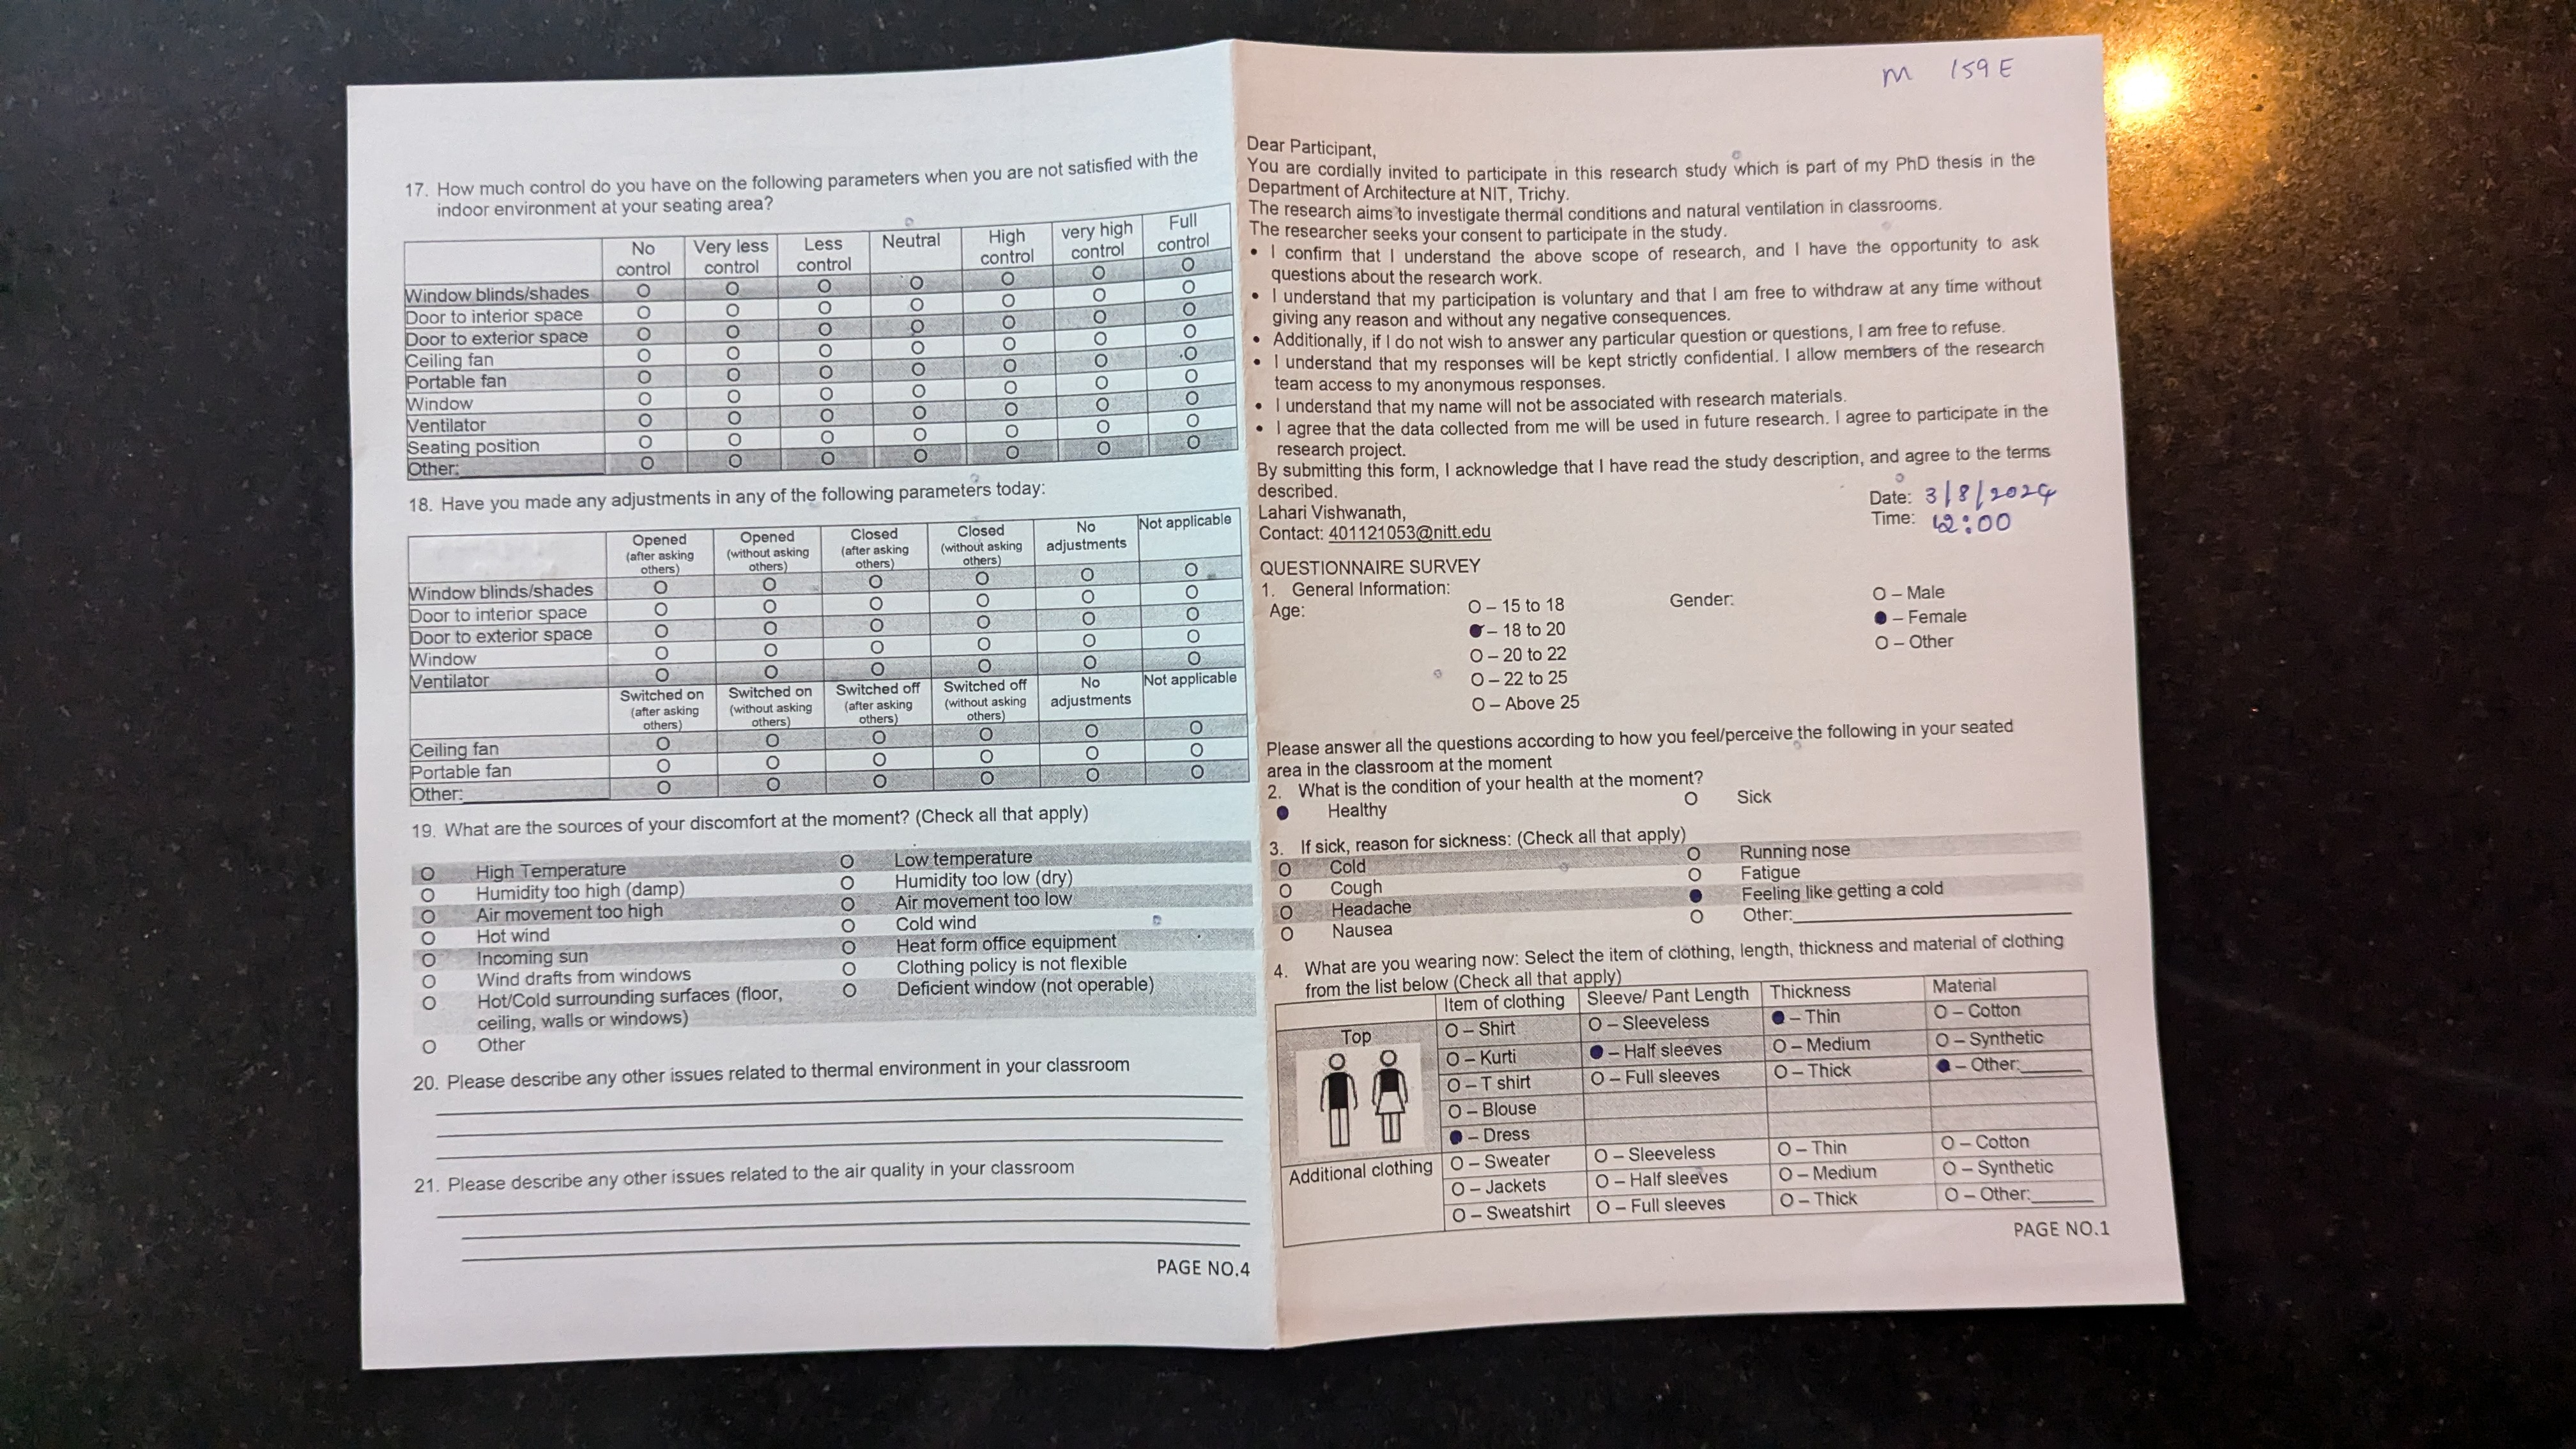 17. How much control do you have on the following parameters when you are not satisfied with the
indoor environment at your seating area?
No control Very less control Less control Neutral High control very high control Full control
Window blinds/shades O O O O O O O
Door to interior space O O O O O O O
Door to exterior space O O O O O O O
Ceiling fan O O O O O O O
Portable fan O O O O O O O
Window O O O O O O O
Ventilator O O O O O O O
Seating position O O O O O O O
Other:_______ O O O O O O O
18. Have you made any adjustments in any of the following parameters today:
Opened (after asking others) Opened (without asking others) Closed (after asking others) Closed (without asking others) No adjustments Not applicable
Window blinds/shades O O O O O O
Door to interior space O O O O O O
Door to exterior space O O O O O O
Window O O O O O O
Ventilator O O O O O O
Switched on (after asking others) Switched on (without asking others) Switched off (after asking others) Switched off (without asking others) No adjustments Not applicable
Ceiling fan O O O O O O
Portable fan O O O O O O
Other:_______ O O O O O O
19. What are the sources of your discomfort at the moment? (Check all that apply)
O High Temperature O Low temperature
O Humidity too high (damp) O Humidity too low (dry)
O Air movement too high O Air movement too low
O Hot wind O Cold wind
O Incoming sun O Heat form office equipment
O Wind drafts from windows O Clothing policy is not flexible
O Hot/Cold surrounding surfaces (floor, O Deficient window (not operable)
ceiling, walls or windows)
O Other
20. Please describe any other issues related to thermal environment in your classroom
21. Please describe any other issues related to the air quality in your classroom
PAGE NO.4
M 159 E
Dear Participant,
You are cordially invited to participate in this research study which is part of my PhD thesis in the
Department of Architecture at NIT, Trichy.
The research aims to investigate thermal conditions and natural ventilation in classrooms.
The researcher seeks your consent to participate in the study.
• I confirm that I understand the above scope of research, and I have the opportunity to ask
questions about the research work.
• I understand that my participation is voluntary and that I am free to withdraw at any time without
giving any reason and without any negative consequences.
• Additionally, if I do not wish to answer any particular question or questions, I am free to refuse.
• I understand that my responses will be kept strictly confidential. I allow members of the research
team access to my anonymous responses.
• I understand that my name will not be associated with research materials.
• I agree that the data collected from me will be used in future research. I agree to participate in the
research project.
By submitting this form, I acknowledge that I have read the study description, and agree to the terms
described.
Lahari Vishwanath,
Contact: 401121053@nitt.edu
Date: 3/8/2024
Time: 12:00
QUESTIONNAIRE SURVEY
1. General Information:
Age: O – 15 to 18 Gender: O – Male
● – 18 to 20 ● – Female
O – 20 to 22 O – Other
O – 22 to 25
O – Above 25
Please answer all the questions according to how you feel/perceive the following in your seated
area in the classroom at the moment
2. What is the condition of your health at the moment?
● Healthy O Sick
3. If sick, reason for sickness: (Check all that apply)
O Cold O Running nose
O Cough O Fatigue
O Headache ● Feeling like getting a cold
O Nausea O Other:_______
4. What are you wearing now: Select the item of clothing, length, thickness and material of clothing
from the list below (Check all that apply)
Item of clothing Sleeve/ Pant Length Thickness Material
Top O – Shirt O – Sleeveless ● – Thin O – Cotton
O – Kurti ● – Half sleeves O – Medium O – Synthetic
O – T shirt O – Full sleeves O – Thick ● – Other:_______
O – Blouse
● – Dress
Additional clothing O – Sweater O – Sleeveless O – Thin O – Cotton
O – Jackets O – Half sleeves O – Medium O – Synthetic
O – Sweatshirt O – Full sleeves O – Thick O – Other:_______
PAGE NO.1